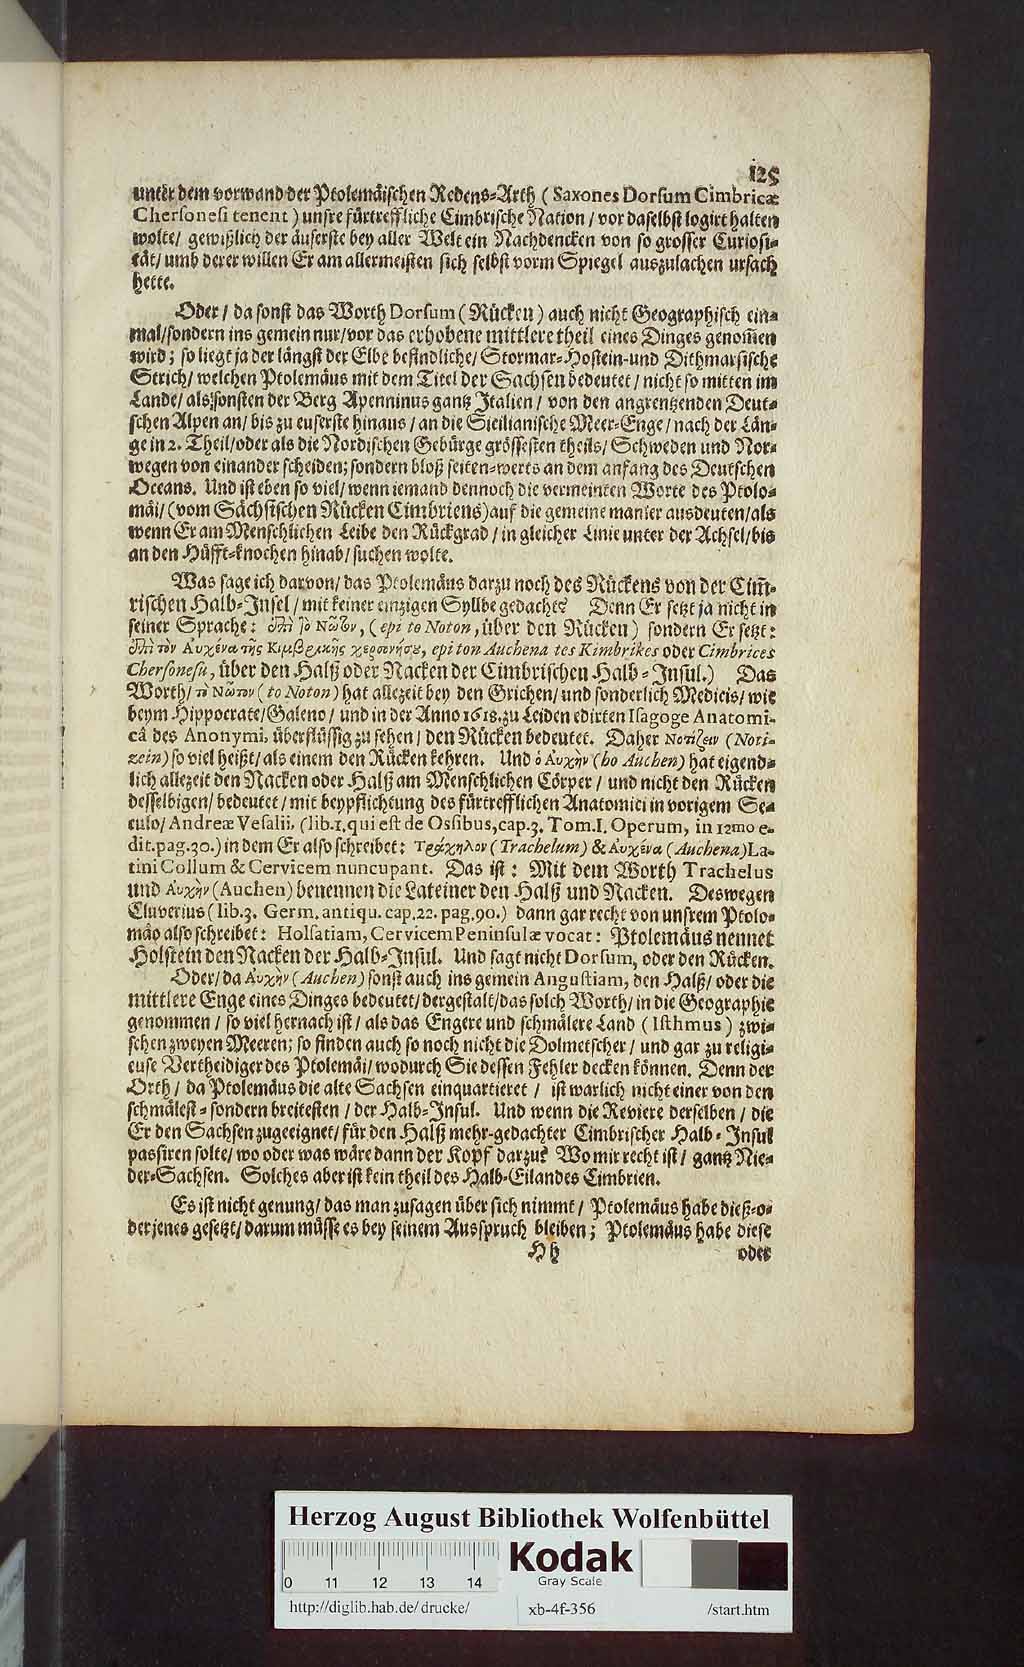 125
unter dem vorwand der Ptolemäischen Redens-Arth ( Saxones Dorsum Cimbricæ
Chersonesi tenent ) unsre fürtreffliche Cimbrische Nation / vor daselbst logirt halten
wolte / gewißlich der äuserste bey aller Welt ein Nachdencken von so grosser Curiosi-
tät / umb derer willen Er am allermeisten sich selbst vorm Spiegel auszulachen ursach
hette.
Oder / da sonst das Worth Dorsum ( Rücken ) auch nicht Geographisch ein-
mal / sondern ins gemein nur / vor das erhobene mittlere theil eines Dinges genom̃en
wird ; so liegt ja der längst der Elbe befindliche / Stormar-Hostein-und Dithmarsische
Strich / welchen Ptolemäus mit dem Titel der Sachsen bedeutet / nicht so mitten im
Lande / als sonsten der Berg Apenninus gantz Italien / von den angrentzenden Deut-
schen Alpen an / bis zu euserste hinaus / an die Sicilianische Meer-Enge / nach der Län-
ge in 2. Theil / oder als die Nordischen Gebürge grössesten theils / Schweden und Nor-
wegen von einander scheiden ; sondern bloß seiten-werts an dem anfang des Deutschen
Oceans. Und ist eben so viel / wenn iemand dennoch die vermeinten Worte des Ptolo-
mäi / (vom Sächsischen Rücken Cimbriens) auf die gemeine manier ausdeuten / als
wenn Er am Menschlichen Leibe den Rückgrad / in gleicher Linie unter der Achsel / bis
an den Hüfft-knochen hinab / suchen wolte.
Was sage ich darvon / das Ptolemäus darzu noch des Rückens von der Cim̃-
rischen Halb-Insel / mit keiner einzigen Syllbe gedacht? Denn Er setzt ja nicht in
seiner Sprache : ἐπὶ τὸ Νῶτον, ( epi to Noton, über den Rücken ) sondern Er setzt :
ἐπὶ τὸν Αυχένα τῆς Κιμβρικῆς χερσονήσου, epi ton Auchena tes Kimbrikes oder Cimbrices
Chersonesu, über den Halß oder Nacken der Cimbrischen Halb - Insul.) Das
Worth / τὸ Νῶτον ( to Noton ) hat allezeit bey den Grichen / und sonderlich Medicis / wie
beym Hippocrate / Galeno / und in der Anno 1618. zu Leiden edirten Isagoge Anatomi-
câ des Anonymi, überflüssig zu sehen / den Rücken bedeutet. Daher Νοτίζειν (Noti-
zein) so viel heißt / als einem den Rücken kehren. Und ὁ Αυχὴν (ho Auchen) hat eigend-
lich allezeit den Nacken oder Halß am Menschlichen Cörper / und nicht den Rücken
desselbigen / bedeutet / mit beypflichtung des fürtrefflichen Anatomici in vorigem Se-
culo / Andreæ Vesalii, (lib.1. qui est de Ossibus, cap.3. Tom.I. Operum, in 12mo e-
dit. pag.30.) in dem Er also schreibet : Τράχηλον ( Trachelum) & Αυχένα (Auchena) La-
tini Collum & Cervicem nuncupant. Das ist : Mit dem Worth Trachelus
und Αυχὴν (Auchen) benennen die Lateiner den Halß und Nacken. Deswegen
Cluverius ( lib.3. Germ. antiqu. cap.22. pag.90.) dann gar recht von unsrem Ptolo-
mäo also schreibet : Holsatiam, Cervicem Peninsulæ vocat : Ptolemäus nennet
Holstein den Nacken der Halb-Insul. Und sagt nicht Dorsum, oder den Rücken.
Oder / da Αυχὴν ( Auchen ) sonst auch ins gemein Angustiam, den Halß / oder die
mittlere Enge eines Dinges bedeutet / dergestalt / das solch Worth / in die Geographie
genommen / so viel hernach ist / als das Engere und schmälere Land ( Isthmus ) zwi-
schen zweyen Meeren ; so finden auch so noch nicht die Dolmetscher / und gar zu religi-
euse Vertheidiger des Ptolemäi / wodurch Sie dessen Fehler decken können. Denn der
Orth / da Ptolemäus die alte Sachsen einquartieret / ist warlich nicht einer von den
schmälest - sondern breitesten / der Halb-Insul. Und wenn die Reviere derselben / die
Er den Sachsen zugeeignet / für den Halß mehr-gedachter Cimbrischer Halb - Insul
passiren solte / wo oder was wäre dann der Kopf darzu? Wo mir recht ist / gantz Nie-
der-Sachsen. Solches aber ist kein theil des Halb-Eilandes Cimbrien.
Es ist nicht genung / das man zusagen über sich nimmt / Ptolemäus habe dieß-o-
der jenes gesetzt / darum müsse es bey seinem Ausspruch bleiben ; Ptolemäus habe diese
Hh oder
Herzog August Bibliothek Wolfenbüttel
Kodak
Gray Scale
0 11 12 13 14
http://diglib.hab.de/drucke/ xb-4f-356 /start.htm